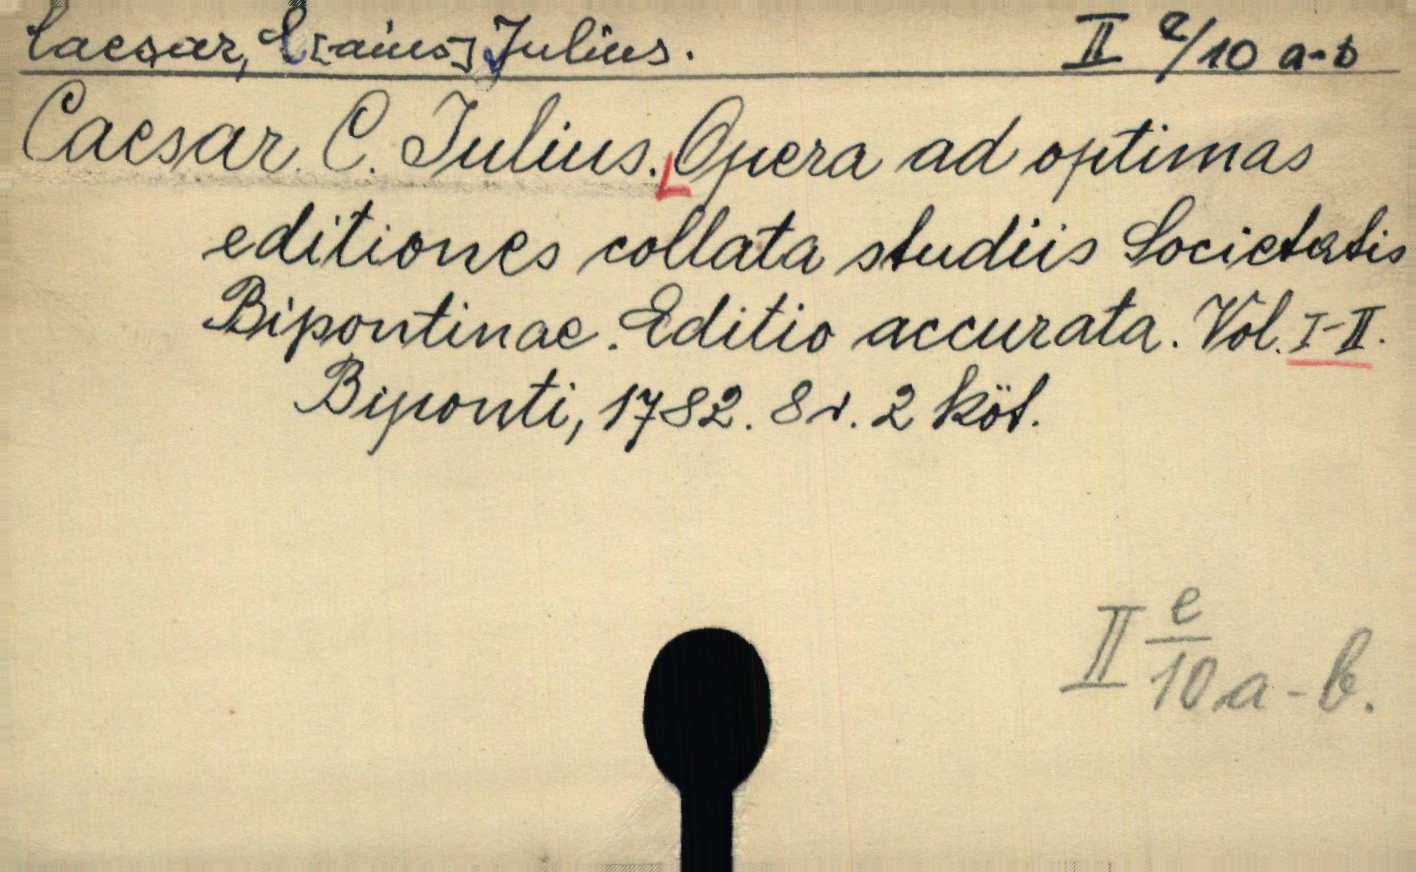 Caesar, C[aius] Julius. II e/10 a-b
Caesar C. Julius. Opera ad optimas
editiones collata studiis Societatis
Bipontinae. Editio accurata. Vol. I-II.
Biponti, 1782. 8r. 2 köt.
II e/10 a-b.